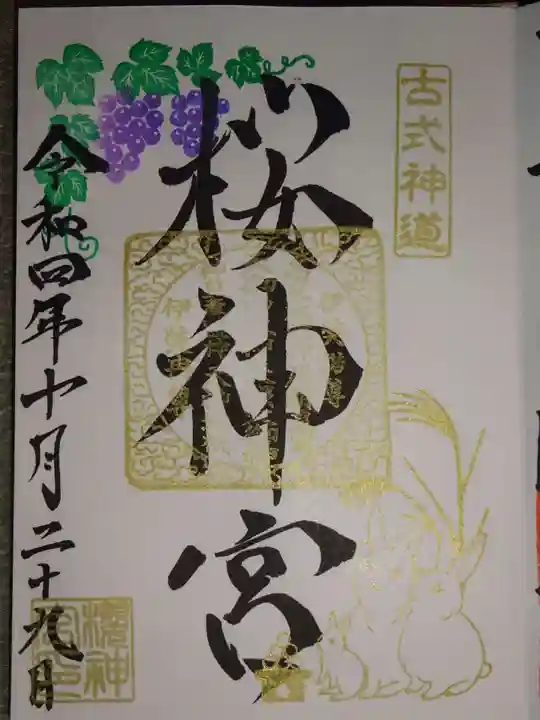 古式神道
桜神宮
令和四年十月二十九日
櫻神宮印